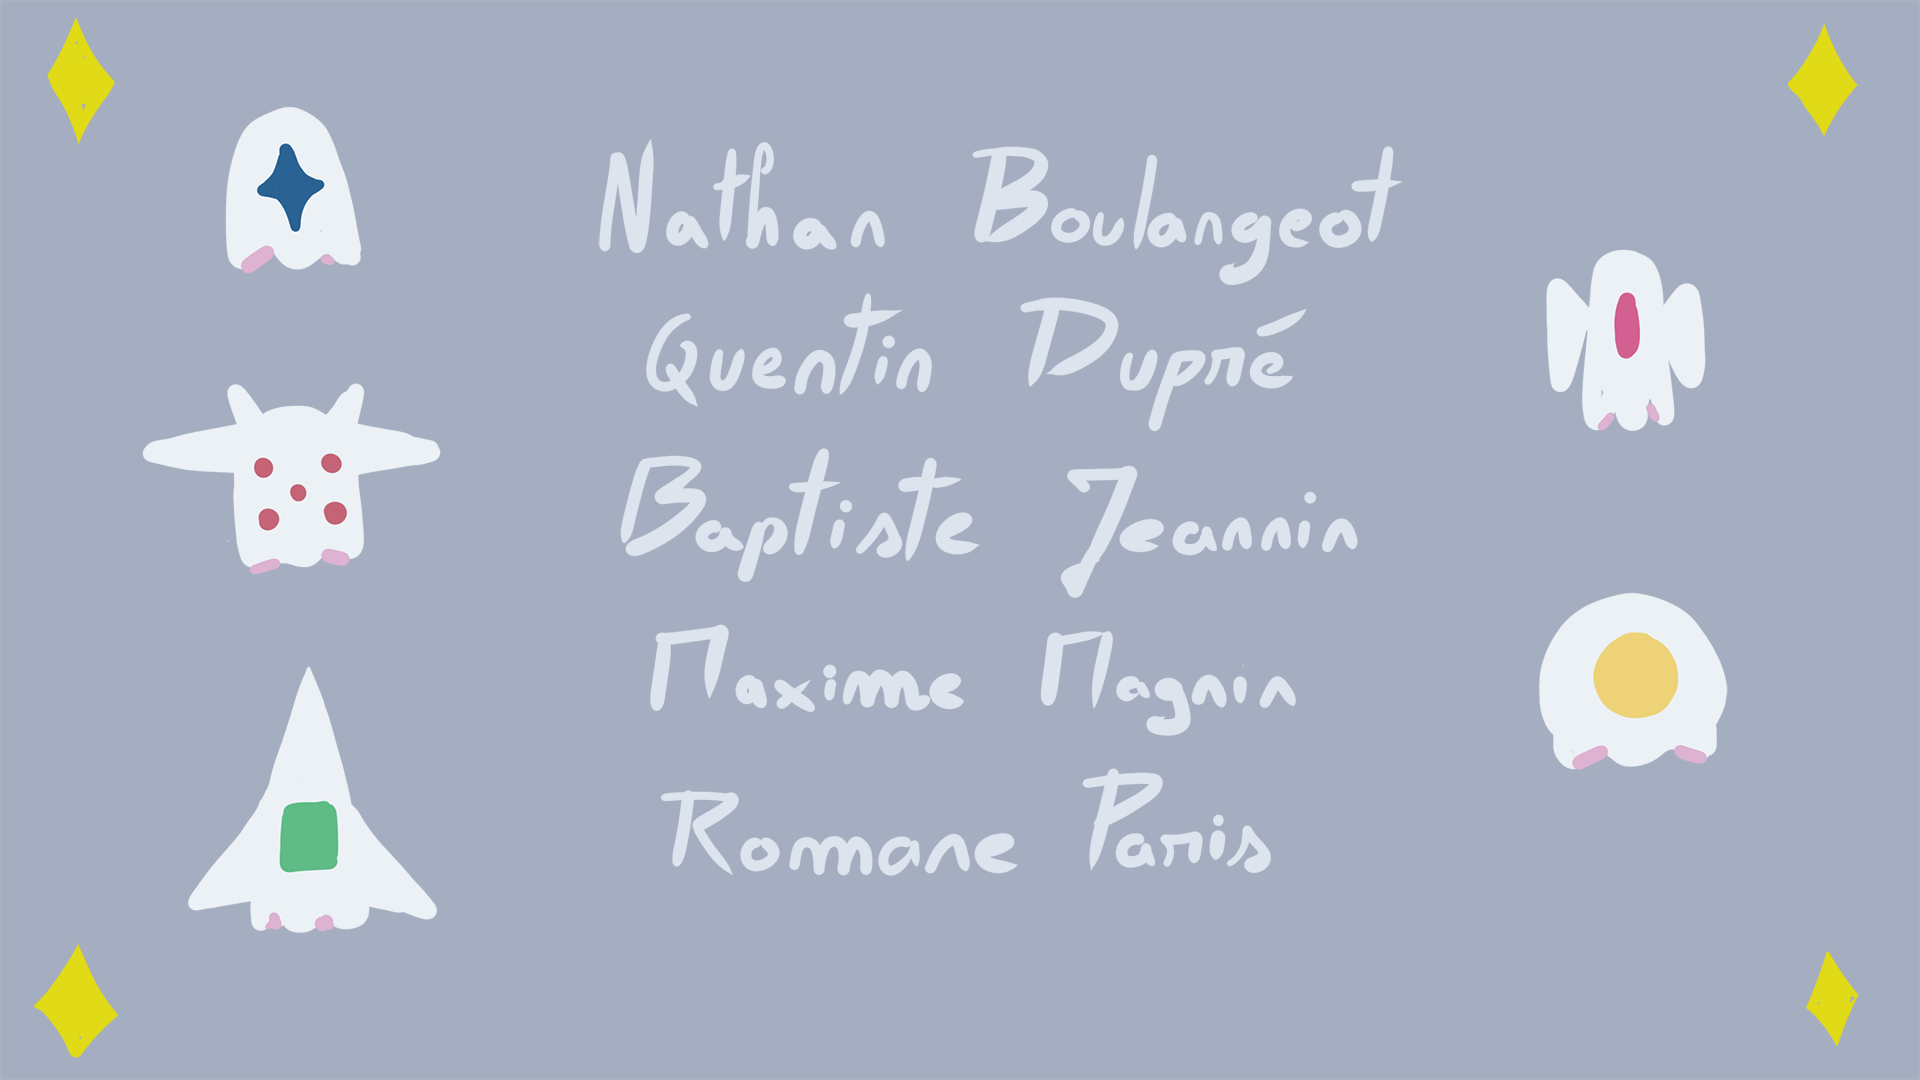 Nathan Boulangeot
Quentin Dupré
Baptiste Jeannin
Maxime Magnin
Romane Paris